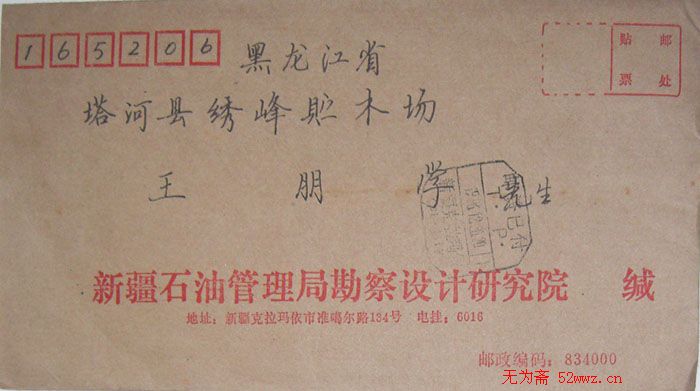 165206
贴邮
票处
黑龙江省
塔河县绣峰贮木场
王朋学先生
已付
T. P.
新疆石油管理局勘察设计研究院 缄
地址：新疆克拉玛依市准噶尔路134号 电挂：6016
邮政编码：834000
无为斋 52wwz.cn